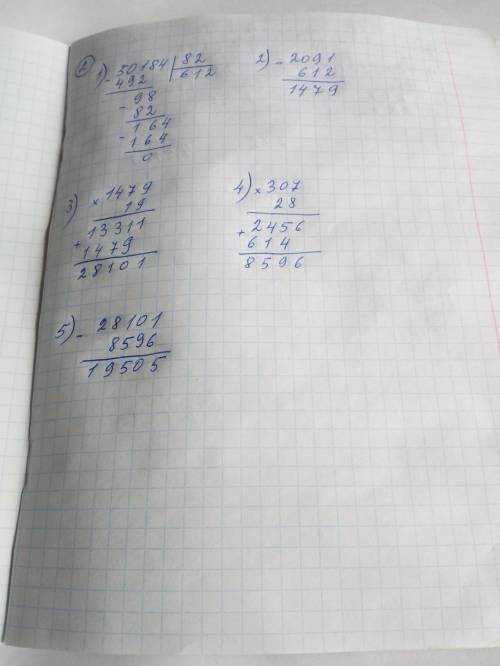 2
1) - 50184 | 82
492 | 612
- 98
82
- 164
164
0
2) - 2091
612
1479
3) × 1479
19
+ 13311
1479
28101
4) × 307
28
+ 2456
614
8596
5) - 28101
8596
19505